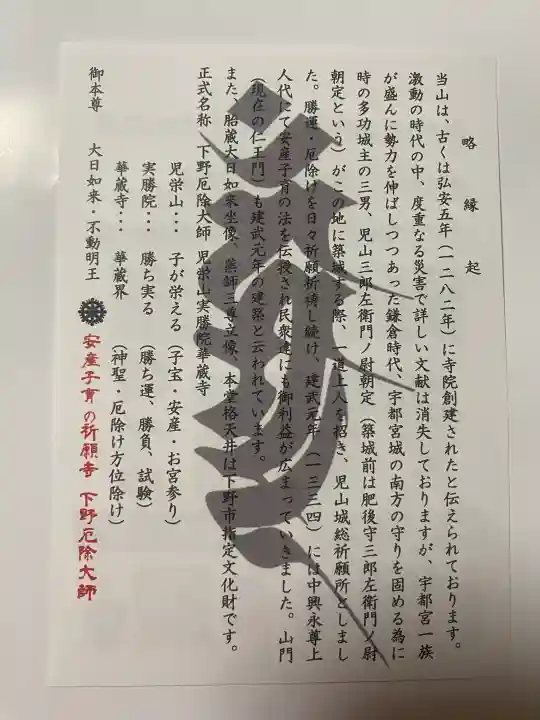 略縁起
当山は、古くは弘安五年（一二八二年）に寺院創建されたと伝えられております。
激動の時代の中、度重なる災害で詳しい文献は消失しておりますが、宇都宮一族
が盛んに勢力を伸ばしつつあった鎌倉時代、宇都宮城の南方の守りを固める為に
時の多功城主の三男、児山三郎左衛門ノ尉朝定（築城前は肥後守三郎左衛門ノ尉
朝定という）がこの地に築城する際、一道上人を招き、児山城総祈願所としまし
た。勝運・厄除けを日々祈願祈祷し続け、建武元年（一三三四）には中興永尊上
人代にて安産子育の法を伝授され民衆達にも御利益が広まっていきました。山門
（現在の仁王門）も建武元年の建築と云われています。
また、胎蔵大日如来坐像、薬師三尊立像、本堂格天井は下野市指定文化財です。
正式名称　下野厄除大師　児栄山実勝院華蔵寺
児栄山・・・　子が栄える（子宝・安産・お宮参り）
実勝院・・・　勝ち実る（勝ち運、勝負、試験）
華蔵寺・・・　華蔵界（神聖・厄除け方位除け）
御本尊　大日如来・不動明王
安産子育の祈願寺　下野厄除大師